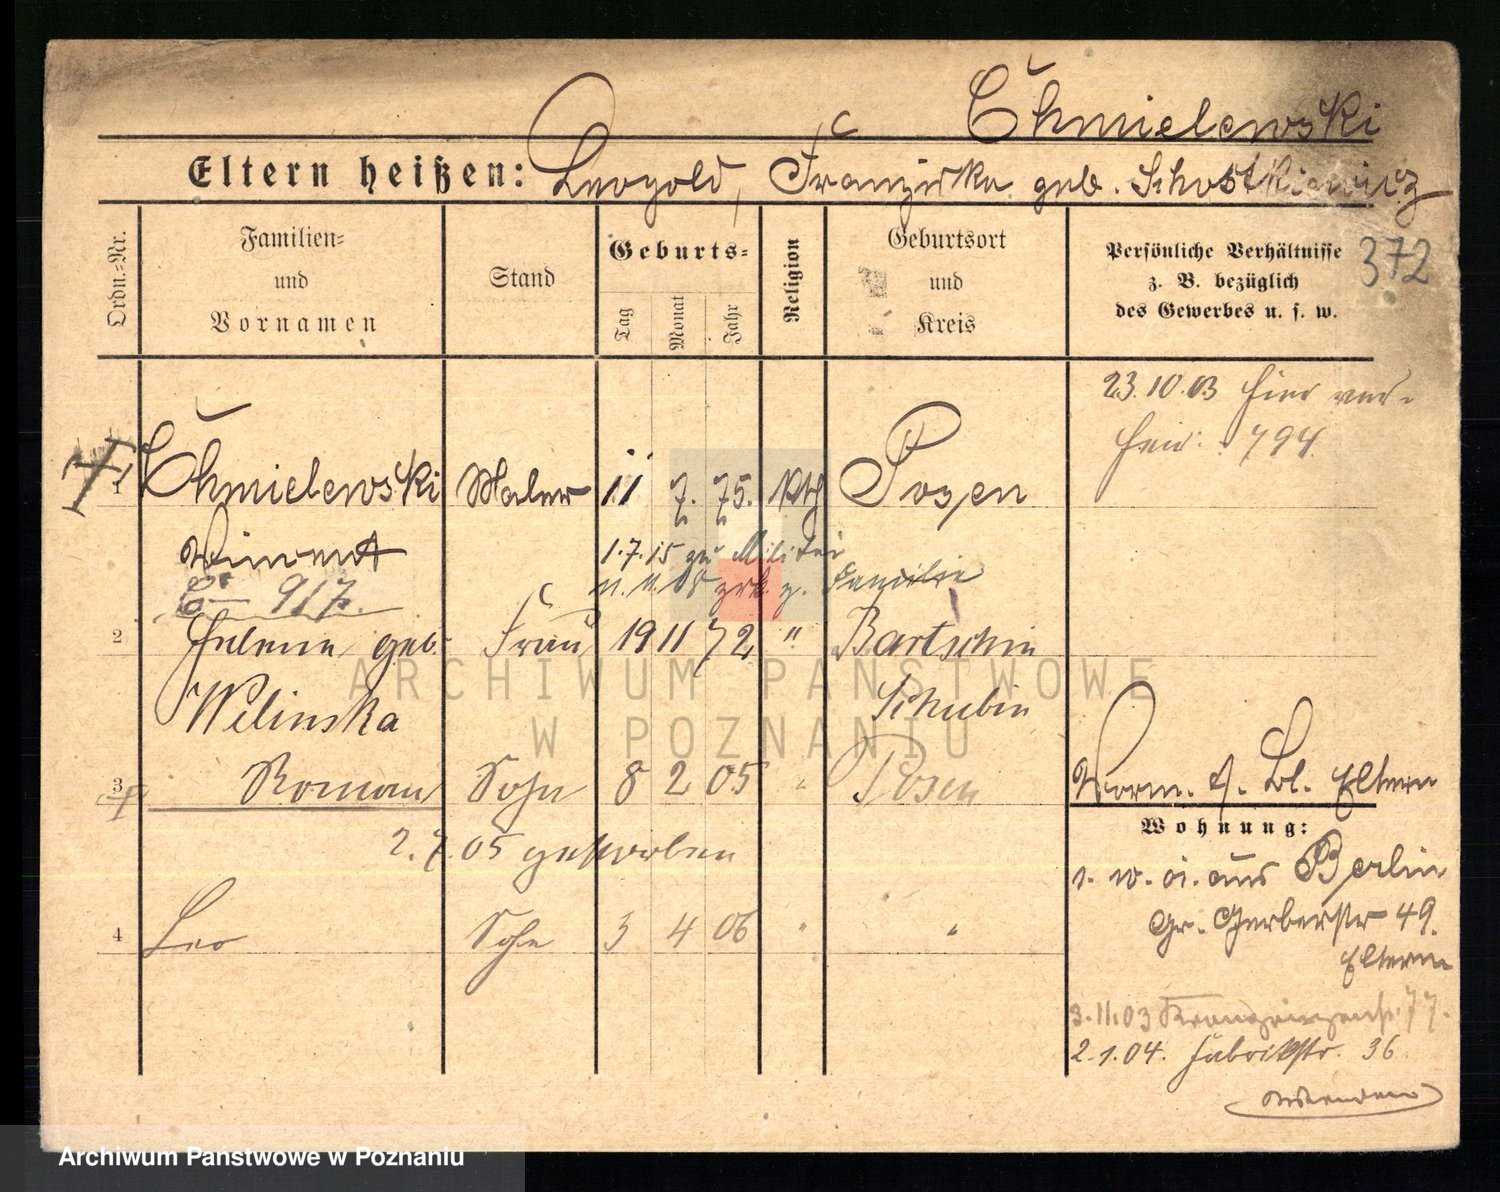 Chmielewski
Eltern heißen: Leopold, Franziska geb. Schostkiewicz
Ordn.-Nr.
Familien- und Vornamen
Stand
Geburts-
Tag
Monat
Jahr
Religion
Geburtsort und Kreis
Persönliche Verhältnisse z. B. bezüglich des Gewerbes u. s. w.
372
23.10.03 hier ver-
heir. 794.
1 Chmielewski Maler 11 7. 75. kth Posen
Vincent
1.7.15 zu Militär
917.
11.11.18 zrk. z. Familie
2 Helene geb. Frau 19 11 72 " Bartschin
Welinska Schubin
3 Roman Sohn 8 2 05 " Posen
2.7.05 gestorben
Vorm. f. Bl. Eltern
Wohnung:
aus Berlin
Gr. Gerberstr 49.
Eltern
4 Leo Sohn 3 4 06 " "
3.11.03 77.
2.1.04. Fabrikstr. 36
ARCHIWUM PAŃSTWOWE
W POZNANIU
Archiwum Państwowe w Poznaniu